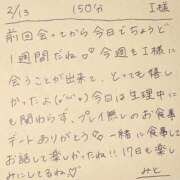 2/13 150分 I様
前回会ってから今日でちょうど
1週間だね♡ 今週もI様に
会うことが出来て、とっても嬉し
かったよ(。・ω・。)今日は生理中に
も関わらず、プレイ無しのお食事
デートありがとう♡一緒にお食事し
てお話して楽しかったね!!17日も楽し
みにしてるね♡
みと